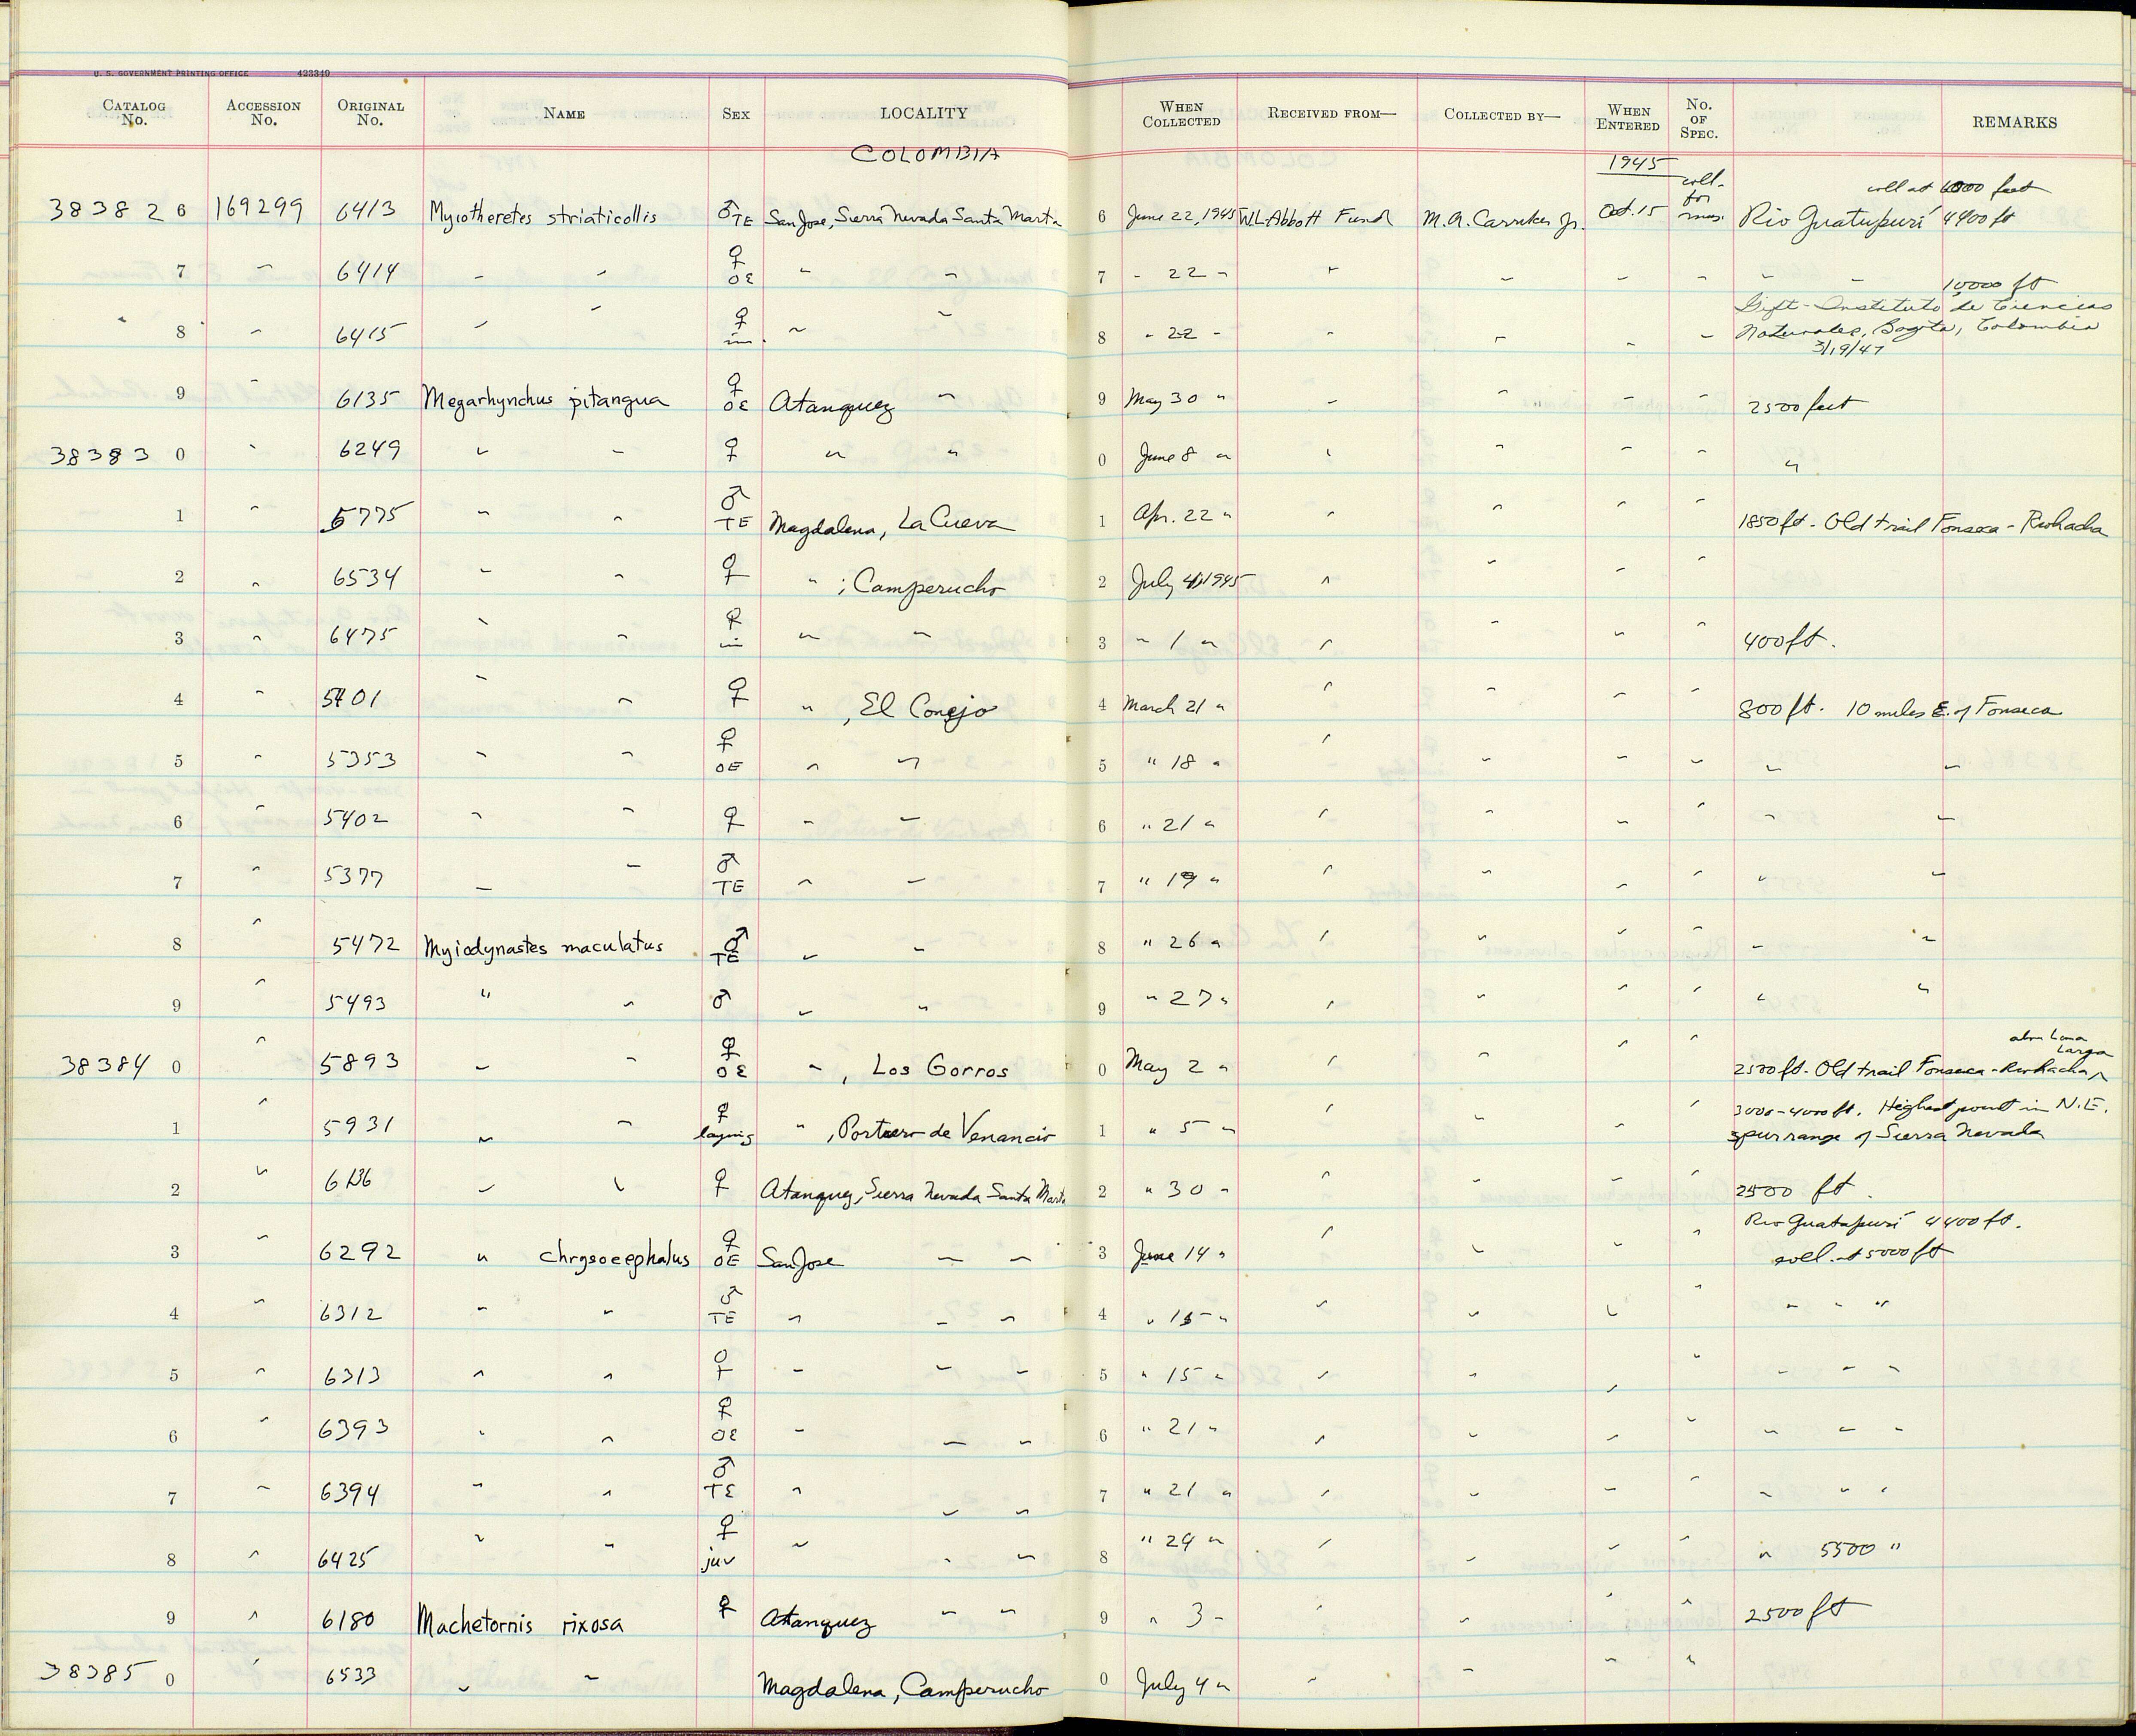 U. S. GOVERNMENT PRINTING OFFICE 423340
CATALOG No. ACCESSION No. ORIGINAL No. NAME SEX LOCALITY WHEN COLLECTED RECEIVED FROM— COLLECTED BY— WHEN ENTERED No. OF SPEC. REMARKS
COLOMBIA 1945
coll. for mus. coll at 6000 feet
383826 169299 6413 Myiotheretes striaticollis ♂ TE San Jose, Sierra Nevada Santa Marta 6 June 22, 1945 W.L. Abbott Fund M.A. Carriker Jr. Oct. 15 Rio Guatapurí 4400 ft
7 " 6414 " " ♀ OE " " 7 " 22 " " " " " " " 10000 ft
8 " 6415 " " ♀ im. " " 8 " 22 " " " " " Gift - Instituto de Ciencias
Naturales, Bogota, Colombia
3/19/47
9 " 6135 Megarhynchus pitangua ♀ OE Atanquez " 9 May 30 " " " " " 2500 feet
383830 " 6249 " " ♀ " " 0 June 8 " " " " " "
1 " 5775 " " ♂ TE Magdalena, La Cueva 1 Apr. 22 " " " " " 1850 ft - Old trail Fonseca - Riohacha
2 " 6534 " " ♀ " ; Camperucho 2 July 4, 1945 " " " "
3 " 6475 " " ♀ im " " 3 " 1 " " " " " 400 ft.
4 " 5401 " " ♀ " , El Conejo 4 March 21 " " " " " 800 ft. 10 miles E. of Fonseca
5 " 5353 " " ♀ OE " " 5 " 18 " " " " " " "
6 " 5402 " " ♀ " " 6 " 21 " " " " " " "
7 " 5377 " " ♂ TE " " 7 " 19 " " " " " " "
8 " 5472 Myiodynastes maculatus ♂ TE " " 8 " 26 " " " " " " "
9 " 5493 " " ♂ " " 9 " 27 " " " " " " "
above Loma Larga
383840 " 5893 " " ♀ OE " , Los Gorros 0 May 2 " " " " " 2500 ft - Old trail Fonseca - Riohacha ^
1 " 5931 " " ♀ laying " , Portrero de Venancio 1 " 5 " " " " " 3000 - 4000 ft. Highest point in N.E.
spur range of Sierra Nevada
2 " 6136 " " ♀ Atanquez, Sierra Nevada Santa Marta 2 " 30 " " " " " 2500 ft.
3 " 6292 " chrysocephalus ♀ OE San Jose " " 3 June 14 " " " " " Rio Guatapurí 4400 ft.
coll. at 5000 ft
4 " 6312 " " ♂ TE " " " 4 " 15 " " " " " " " "
5 " 6313 " " ♀ " " " 5 " 15 " " " " " " " "
6 " 6393 " " ♀ OE " " " 6 " 21 " " " " " " " "
7 " 6394 " " ♂ TE " " " 7 " 21 " " " " " " " "
8 " 6425 " " ♀ juv " " " 8 " 24 " " " " " " 5500 "
9 " 6180 Machetornis rixosa ♀ Atanquez " " 9 " 3 " " " " " 2500 ft
383850 " 6533 " " Magdalena, Camperucho 0 July 4 " " " " "